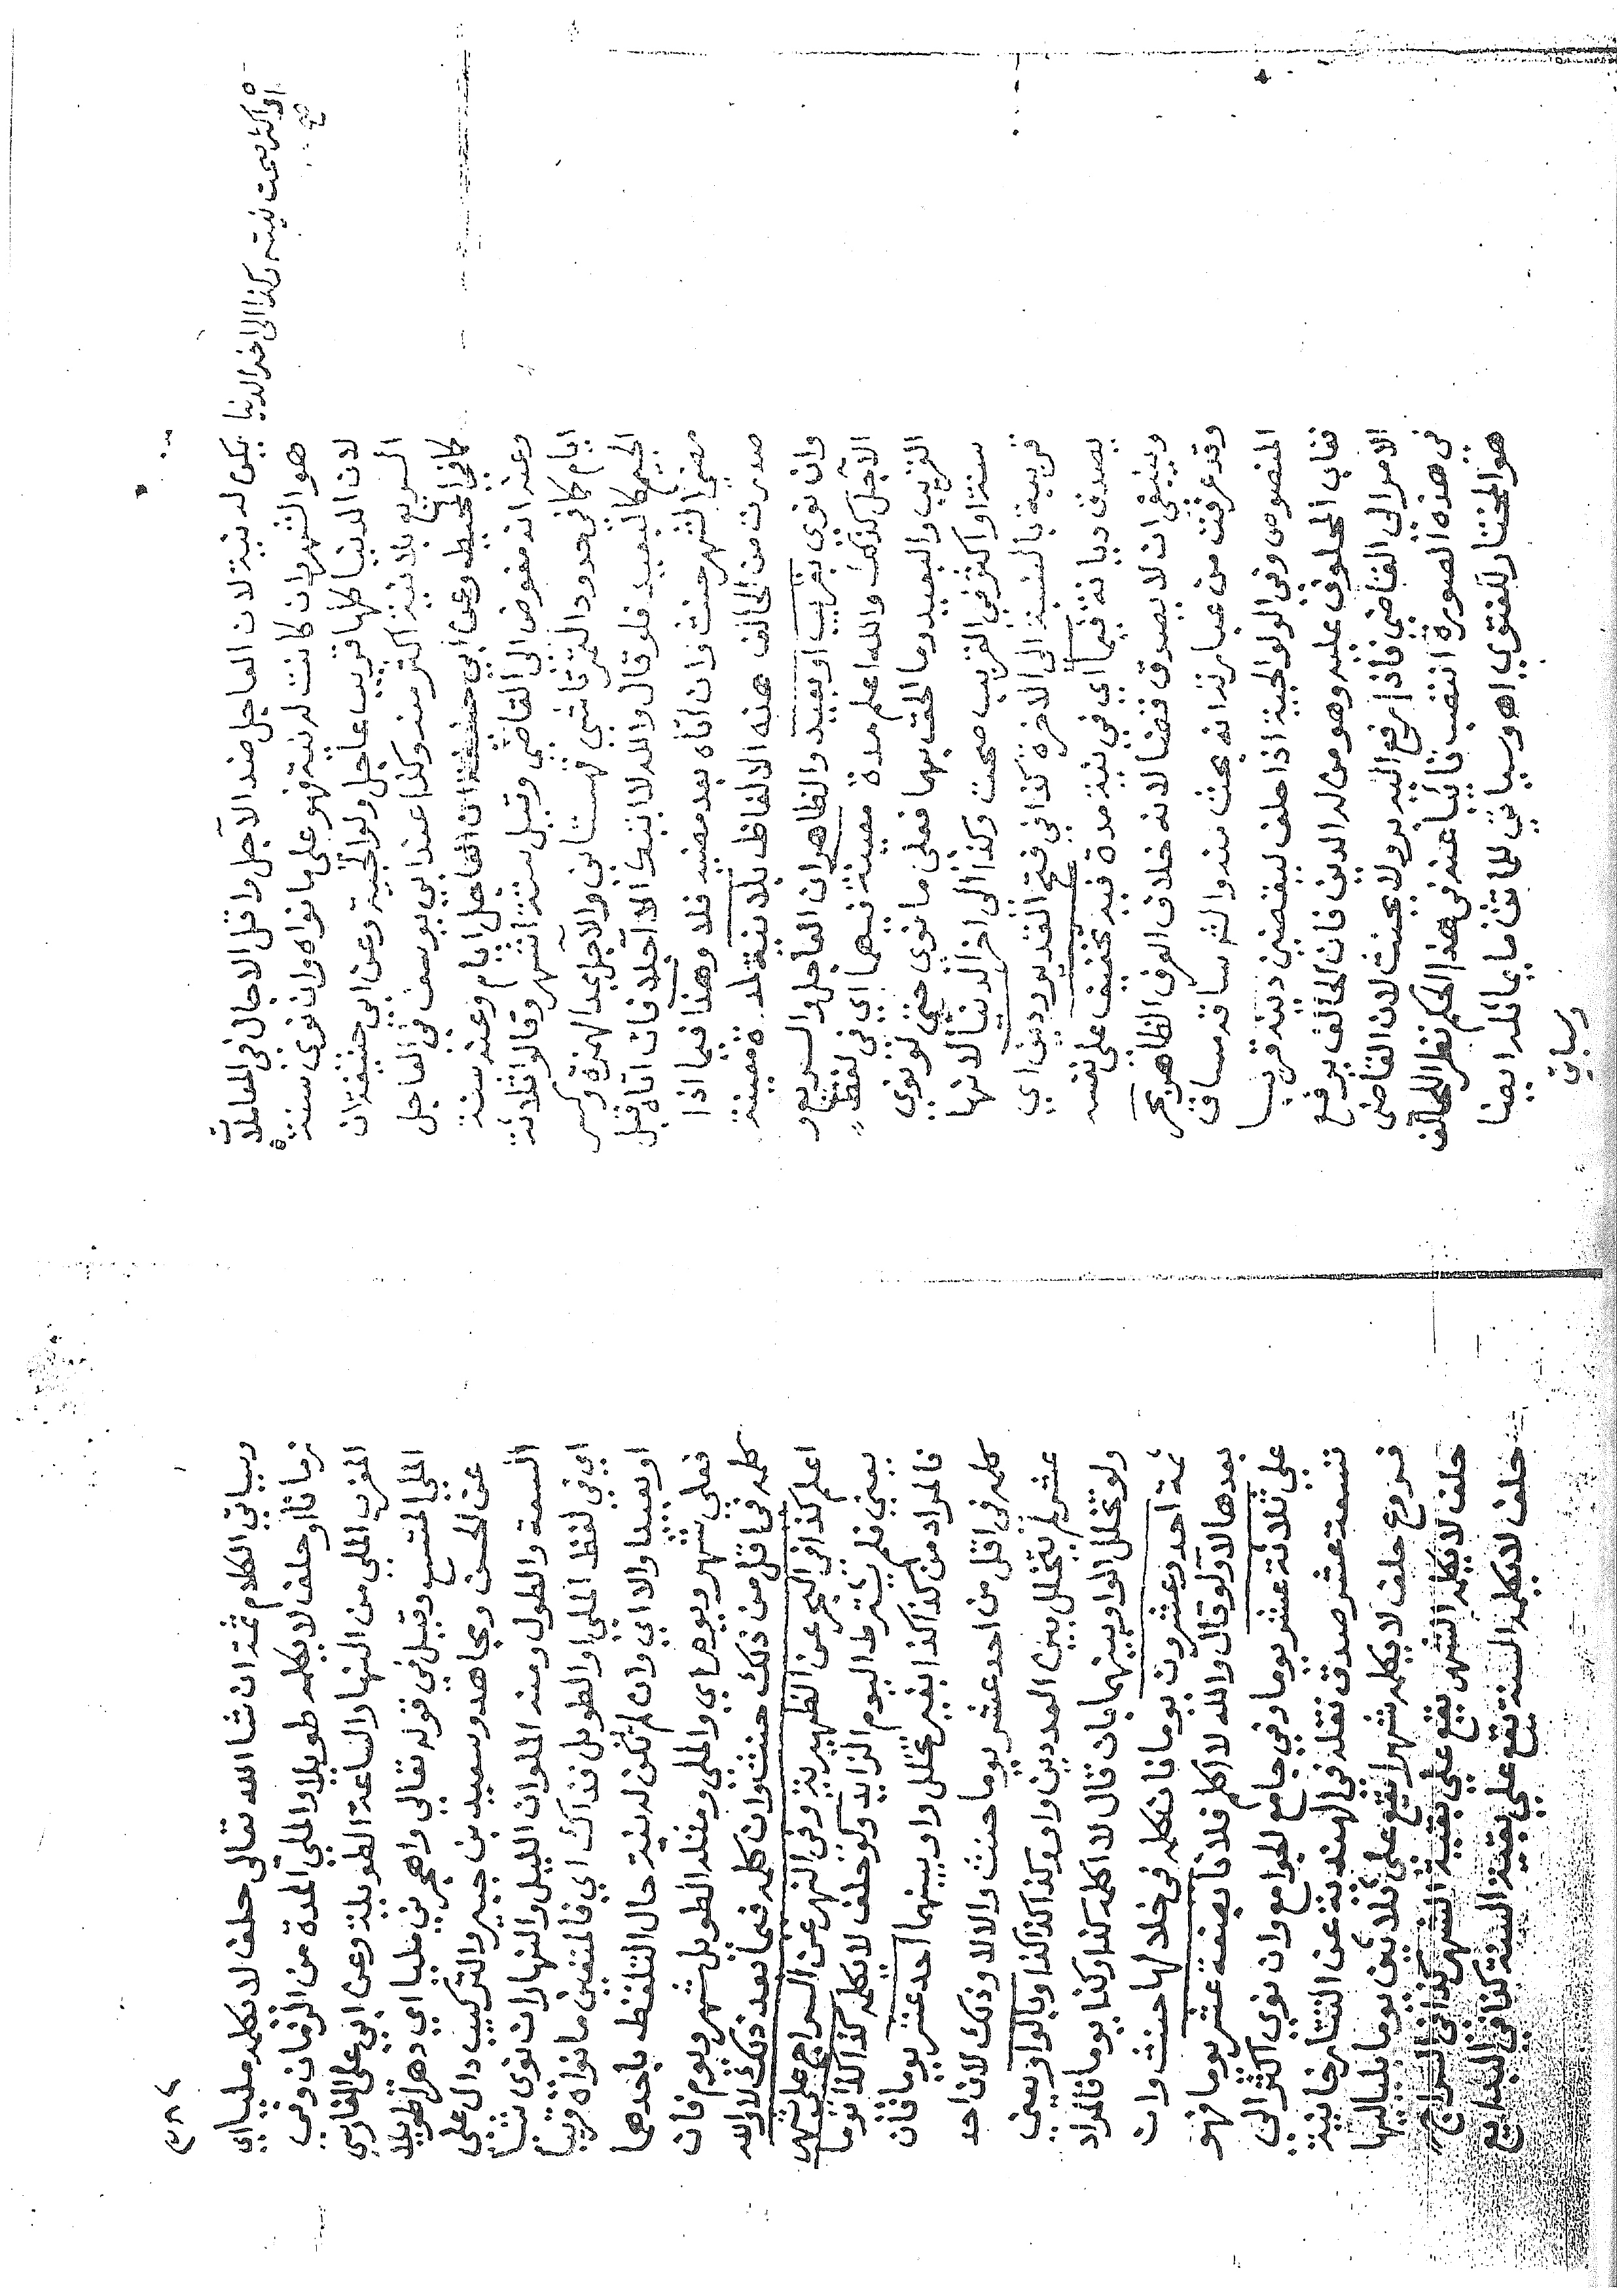 يكن له نية لان العاجل ضد الآجل واقل الاجال في المعاملات
هو الشهر وان كانت له نية فهو على ما نواه ولو نوى سنة
او اكثر صحت نيته وكذا الى اخر الدنيا
صح
لان الدنيا كلها قريب عاجل ولوالجية وعن ابي حنيفة ان
السريع بلا نية اكثر منه وكذا عند ابي يوسف في العاجل
كما في المحيط وعن ابي حنيفة ان العاجل ايام وعنه سنة
وعنه انه مفوض الى القاضي وقيل ستة اشهر وقالوا ثلاثة
ايام كما في حدود التمرتاشي قهستاني والآجل بمد الهمزة وكسر
الجيم كالبعيد فلو قال والله لا اتيتك الا آجلا فان اتاه قبل
مضي الشهر حنث وان اتاه بعد مضيه فلا وهذا فيما اذا
صدرت من الحالف هذه الالفاظ بلا نية لمدة معينة
وان نوى بقريب او بعيد والظاهر ان العاجل والسريع و
الآجل كذلك والله اعلم مدة معينة فيهما اي في لفظ
القريب والبعيد وما الحق بهما فعلى ما نوى حتى لو نوى
سنة او اكثر في القريب صحت وكذا الى اخر الدنيا لانها
قريبة بالنسبة الى الاخرة كذا في فتح القدير ويدين اي
يصدق ديانة فيما اي في نية مدة فيه تخفيف على نفسه
وينبغي ان لا يصدق قضا لانه خلاف العرف الظاهر بحر
وقد عرفت من عبارته انه بحث منه والش ساقه مساق
المنصوص وفي الولوالجية اذا حلف ليقضين دينه قريبا
فغاب المحلوف عليه وهو من له الدين فان الحالف يرفع
الامر الى القاضي فاذا رفع اليه برولا يحنث لان القاضي
في هذه الصورة انتصب نائبا عنه في هذا الحكم نظرا للحالف
هو المختار للفتوى اهـ وسياتي للماتن مايما ثله ايضا
وسياتي
٢٨٤
وسياتي الكلام ثمة ان شا الله تعالى حلف لا يكلمه مليا اي
زمانا او حلف لا يكلمه طويلا والملي المدة من الزمان وفي
المغرب الملي من النهار الساعة الطويلة وعن ابي علي الفارسي
الملي المتسع وقيل في قوله تعالى واهجرني مليا اي دهرا طويلا
عن الحسن ومجاهد وسعيد بن جبير والتركيب دال على
السعة والطول ومنه الملوان الليل والنهار ان نوى شيا
اي في لفظ الملي والطويل فذاك اي فالمتعين ما نواه قريبا
او بعيدا والا اي وان لم تكن له نية حال التلفظ باحدهما
فعلى شهر ويوم اي والملي ومثله الطويل شهر ويوم فان
كلمه في اقل من ذلك حنث وان كلمه فيما بعد ذلك لا والله
اعلم كذا في البحر عن الظهيرية وفي النهر عن السراج على شهر
يعني فلم يشترط اليوم الزايد ولو حلف لا يكلمه كذا كذا يوما
فالمراد من كذا كذا بغير تخلل واو بينهما احد عشر يوما فان
كلمه في اقل من احد عشر يوما حنث والا لا وذلك لان احد
عشر لم يتخلل بين العددين واو وكذا كذا كذا وبالواو يعني
ولو تخلل الواو بينهما بان قال لا اكلمه كذا وكذا يوما فالمراد
ثمة احد وعشرون يوما فان كلمه في خلالها حنث وان
بعدها لا ولو قال والله لا اكلم فلانا بضعة عشر يوما فهو
على ثلاثة عشر يوما وفي جامع الجوامع وان نوى اكثر الى
تسعة عشر صدق نقله في الهندية عن التتارخانية
فروع حلف لا يكلمه شهرا يقع على ثلاثين يوما بلياليها
حلف لا يكلمه الشهر يقع على بقية الشهر كذا في السراج
حلف لا يكلمه السنة يقع على بقية السنة كذا في البدايع